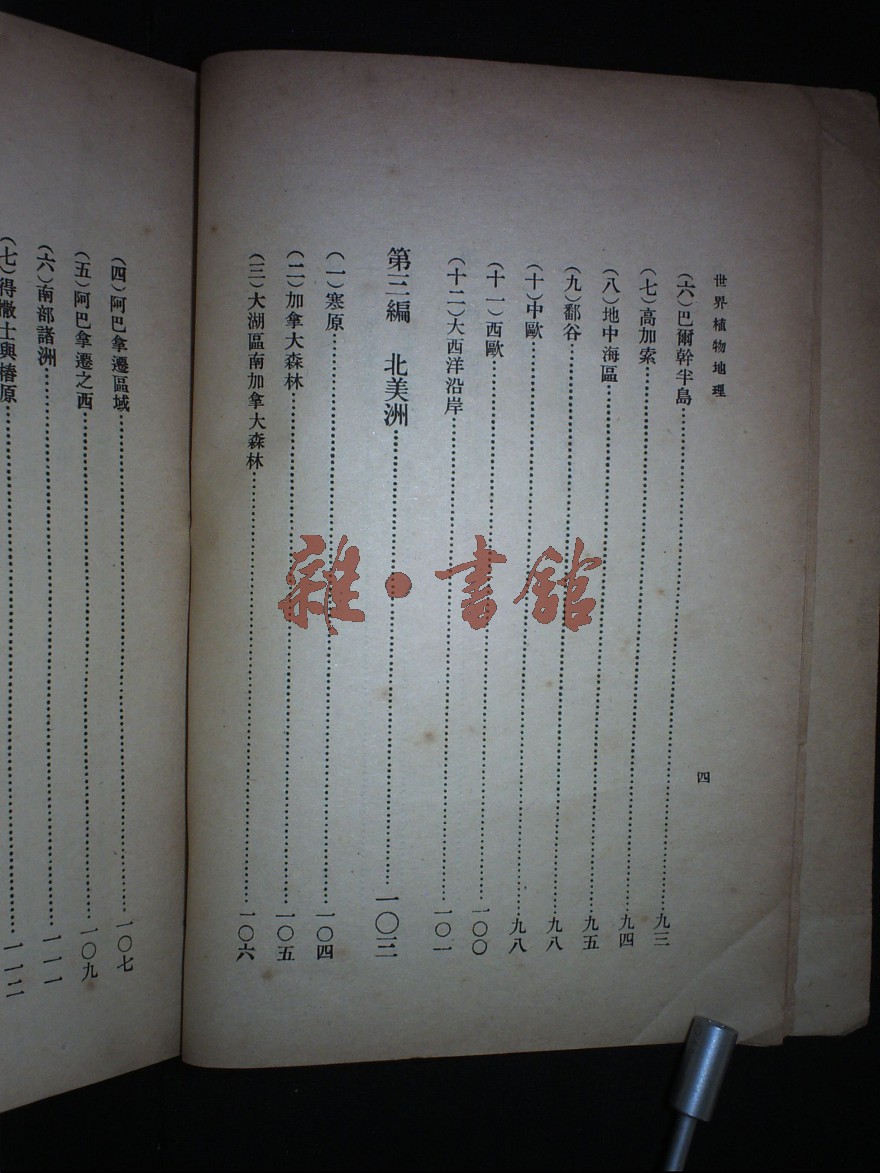 世界植物地理
四
(六)巴爾幹半島……九三
(七)高加索……九四
(八)地中海區……九五
(九)鄱谷……九八
(十)中歐……九八
(十一)西歐……一〇〇
(十二)大西洋沿岸……一〇一
第三編 北美洲……一〇三
(一)寒原……一〇四
(二)加拿大森林……一〇五
(三)大湖區南加拿大森林……一〇六
(四)阿巴拿遷區域……一〇七
(五)阿巴拿遷之西……一〇九
(六)南部諸洲……一一一
(七)得撒士與樁原……一一二
雜·書館